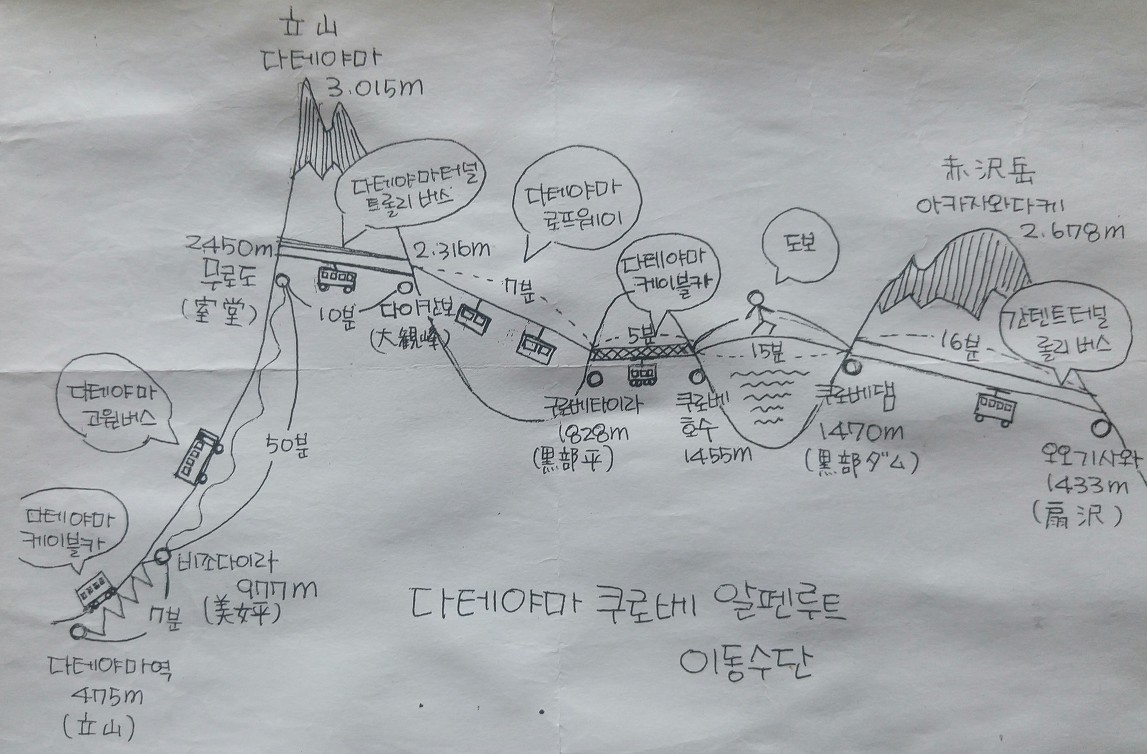 立山
다테야마
3.015m
다테야마터널
트롤리 버스
다테야마
로프웨이
다테야마
케이블카
도보
赤沢岳
아카자와다케
2.678m
간텐트터널
롤리 버스
2450m
무로도
(室堂)
10분
2.316m
다이칸보
(大観峰)
7분
5분
15분
16분
쿠로베타이라
1828m
(黒部平)
쿠로베
호수
1455m
쿠로베댐
1470m
(黒部ダム)
오오기사와
1433m
(扇沢)
다테야마
고원버스
50분
다테야마
케이블카
비조다이라
977m
(美女平)
7분
다테야마역
475m
(立山)
다테야마 쿠로베 알펜루트
이동수단